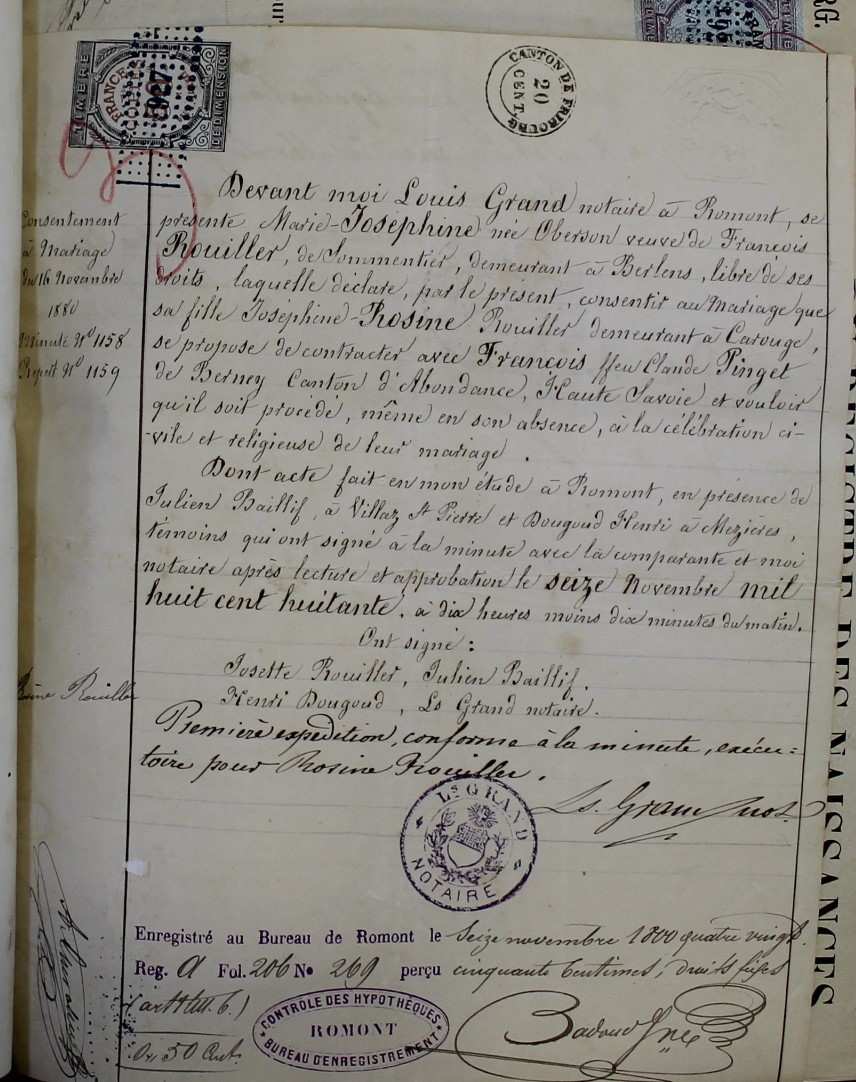 TIMBRE
FRANCE
DE DIMENSION
CANTON DE FRIBOURG
20
CENT.
Devant moi Louis Grand notaire à Romont, se
présente Marie-Joséphine née Oberson veuve de François
Rouiller, de Sommentier, demeurant à Berlens, libre de ses
droits, laquelle déclare, par le présent, consentir au Mariage que
sa fille Joséphine-Rosine Rouiller demeurant à Carouge,
se propose de contracter avec François ffeu Claude Pinget
de Berney Canton d'Abondance, Haute Savoie) et vouloir
qu'il soit procédé, même en son absence, à la célébration ci-
-vile et religieuse de leur mariage.
Dont acte fait en mon étude à Romont, en présence de
Julien Baillif, à Villaz St Pierre et Dougoud Henri à Mezières,
témoins qui ont signé à la minute avec la comparante et moi
notaire après lecture et approbation le seize Novembre mil
huit cent huitante, à dix heures moins dix minutes du matin.
Ont signé :
Josette Rouiller, Julien Baillif.
Henri Dougoud, Ls Grand notaire.
Première expédition, conforme à la minute, exécu-
toire pour Rosine Rouiller.
Consentement
à Mariage
du 16 Novembre
1880
Minute No 1158
Répert. No 1159
Rosine Rouiller
Ls. Grand not.
Ls GRAND
NOTAIRE
Enregistré au Bureau de Romont le Seize novembre 1800 quatre vingt.
Reg. A Fol. 206 No 269 perçu cinquante Centimes, droits fixes
50 Cent.
CONTRÔLE DES HYPOTHÈQUES
ROMONT
BUREAU D'ENREGISTREMENT
REGISTRE DES NAISSANCES